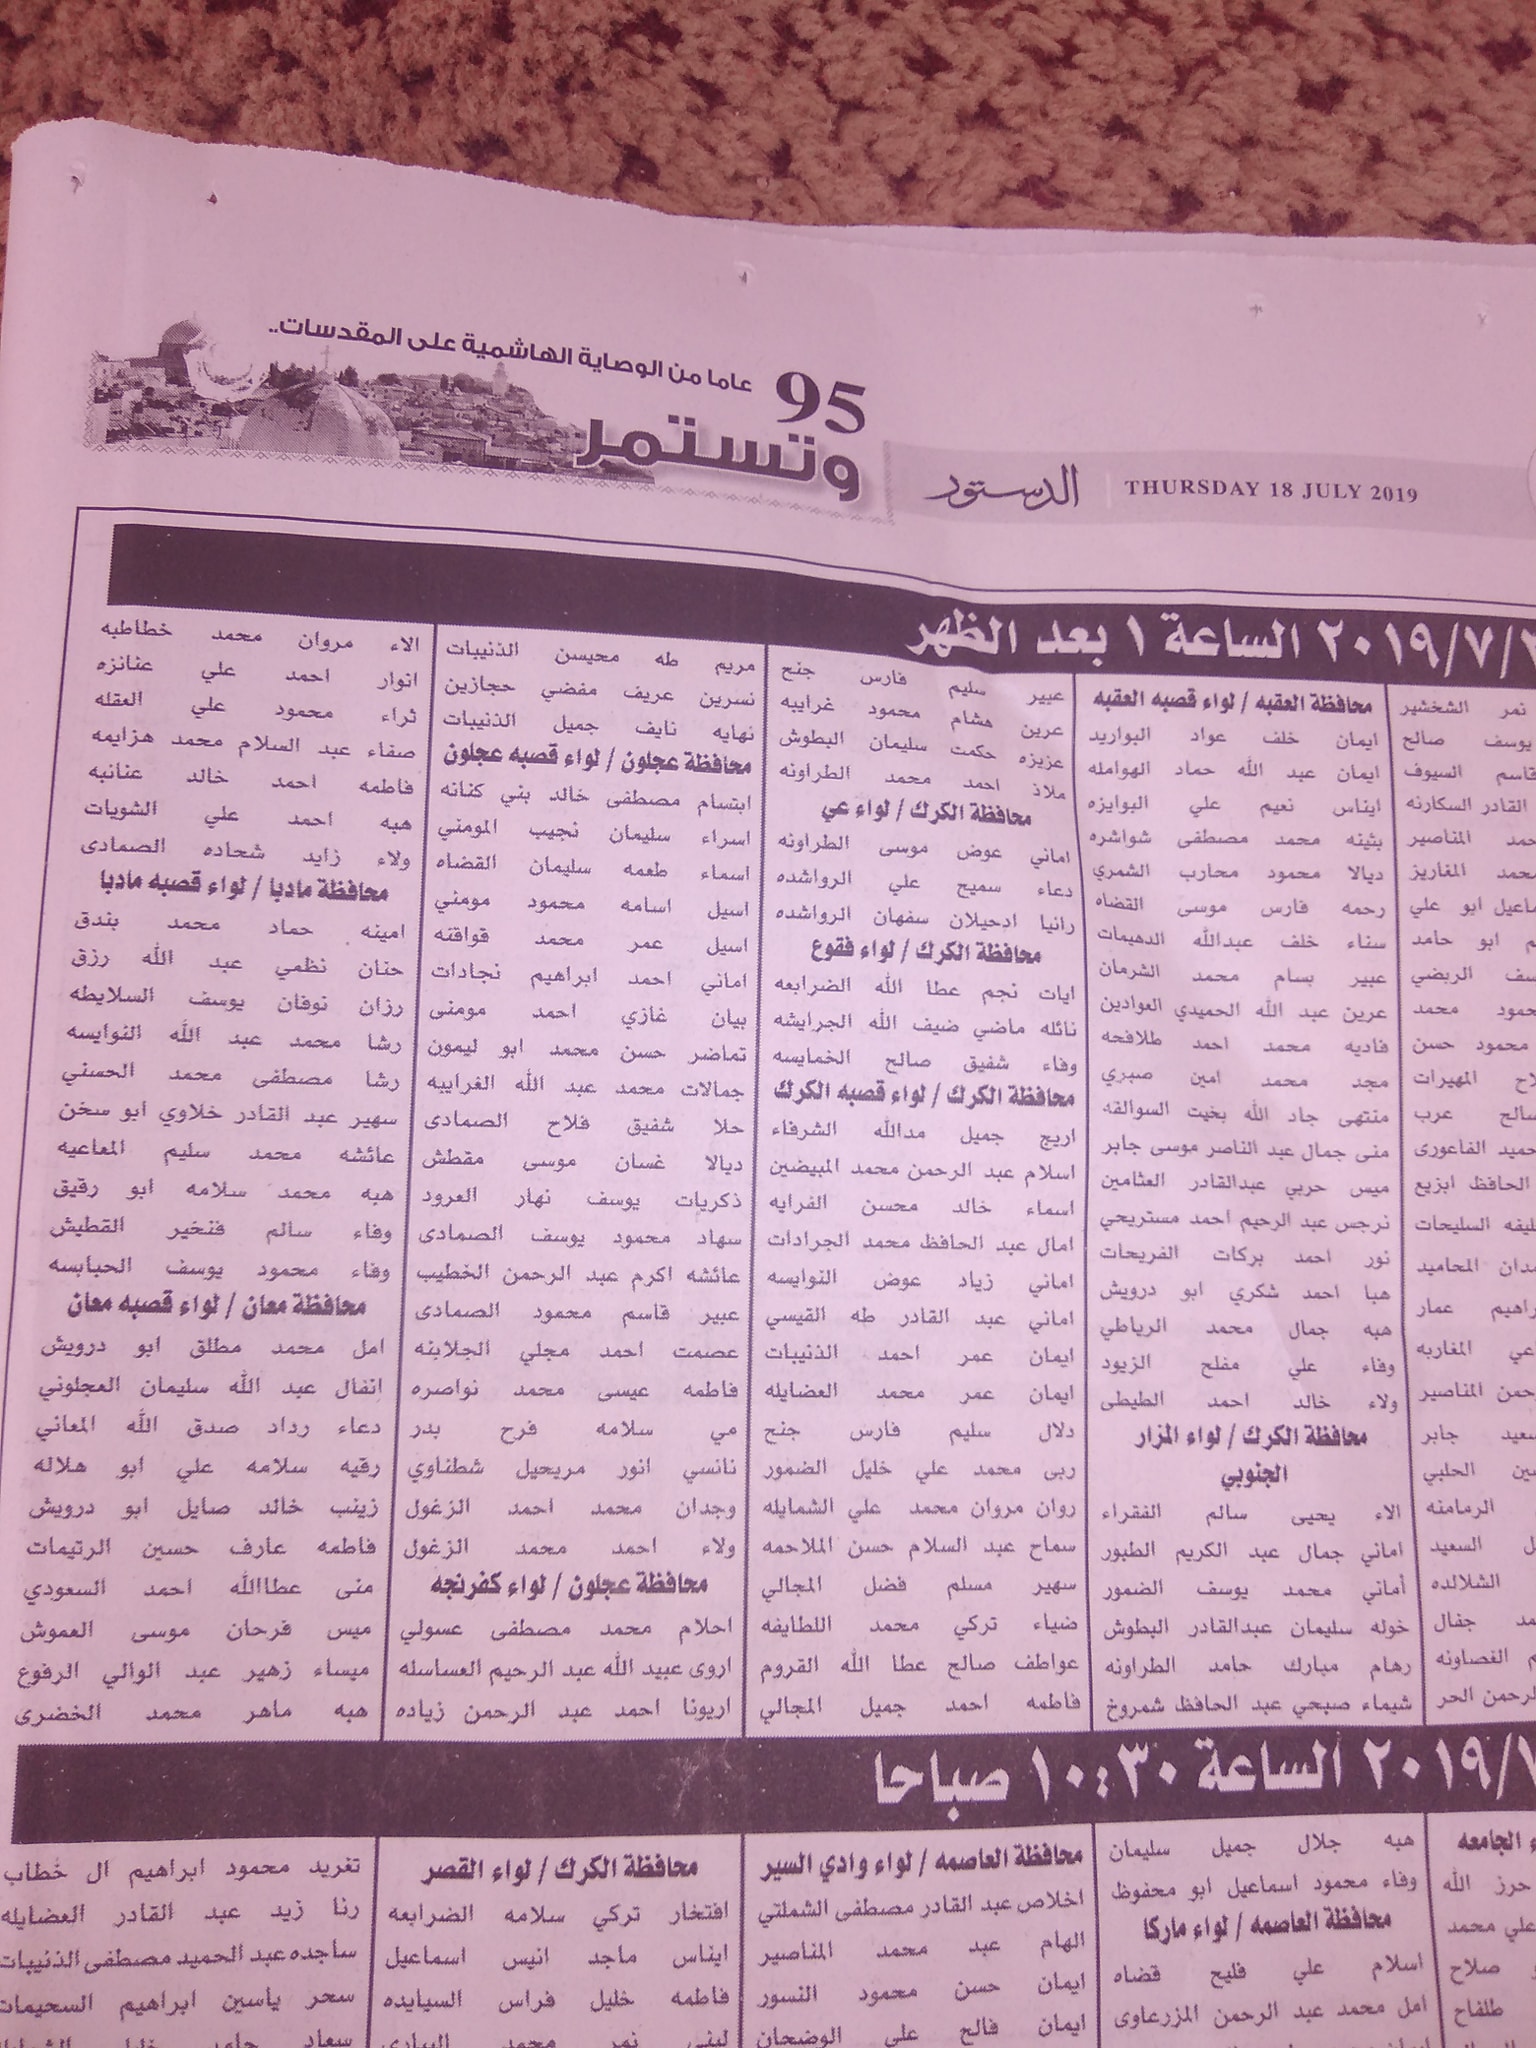 95 عاما من الوصاية الهاشمية على المقدسات..
وتستمر
الدستور
THURSDAY 18 JULY 2019
٢٠١٩/٧/ الساعة ١ بعد الظهر
نمر الشخشير
يوسف صالح
قاسم السيوف
القادر السكارنه
المناصير
المغاريز
ابو علي
ابو حامد
الربضي
محمد
محمود حسن
المهيرات
عرب
الفاعوري
الحافظ ابزيع
السليحات
المحاميد
عمار
المغاربه
المناصير
جابر
الحلبي
الرمامنه
السعيد
الشلالده
جفال
الغصاونه
الحر
محافظة العقبه / لواء قصبه العقبه
ايمان خلف عواد البواريد
ايمان عبد الله حماد الهوامله
ايناس نعيم علي البوايزه
بثينه محمد مصطفى شواشره
ديالا محمود محارب الشمري
رحمه فارس موسى القضاه
سناء خلف عبدالله الدهيمات
عبير بسام محمد الشرمان
عرين عبد الله الحميدي العوادين
فاديه محمد احمد طلافحه
مجد محمد امين صبري
منتهى جاد الله بخيت السوالقه
منى جمال عبد الناصر موسى جابر
ميس حربي عبدالقادر العثامين
نرجس عبد الرحيم احمد مستريحي
نور احمد بركات الفريحات
هبا احمد شكري ابو درويش
هبه جمال محمد الرياطي
وفاء علي مفلح الزيود
ولاء خالد احمد الطيطي
محافظة الكرك / لواء المزار
الجنوبي
الاء يحيى سالم الفقراء
اماني جمال عبد الكريم الطبور
أماني محمد يوسف الضمور
خوله سليمان عبدالقادر البطوش
رهام مبارك حامد الطراونه
شيماء صبحي عبد الحافظ شمروخ
عبير سليم فارس جنح
عرين هشام محمود غرايبه
عزيزه حكمت سليمان البطوش
ملاذ احمد محمد الطراونه
محافظة الكرك / لواء عي
اماني عوض موسى الطراونه
دعاء سميح علي الرواشده
رانيا ادحيلان سفهان الرواشده
محافظة الكرك / لواء فقوع
ايات نجم عطا الله الضرابعه
نائله ماضي ضيف الله الجرايشه
وفاء شفيق صالح الخمايسه
محافظة الكرك / لواء قصبه الكرك
اريج جميل مدالله الشرفاء
اسلام عبد الرحمن محمد المبيضين
اسماء خالد محسن الفرايه
امال عبد الحافظ محمد الجرادات
اماني زياد عوض النوايسه
اماني عبد القادر طه القيسي
ايمان عمر احمد الذنيبات
ايمان عمر محمد العضايله
دلال سليم فارس جنح
ربى محمد علي خليل الضمور
روان مروان محمد علي الشمايله
سماح عبد السلام حسن الملاحمه
سهير مسلم فضل المجالي
ضياء تركي محمد اللطايفه
عواطف صالح عطا الله القروم
فاطمه احمد جميل المجالي
مريم طه محيسن الذنيبات
نسرين عريف مفضي حجازين
نهايه نايف جميل الذنيبات
محافظة عجلون / لواء قصبه عجلون
ابتسام مصطفى خالد بني كنانه
اسراء سليمان نجيب المومني
اسماء طعمه سليمان القضاه
اسيل اسامه محمود مومني
اسيل عمر محمد قواقنه
اماني احمد ابراهيم نجادات
بيان غازي احمد مومنى
تماضر حسن محمد ابو ليمون
جمالات محمد عبد الله الغرايبه
حلا شفيق فلاح الصمادى
ديالا غسان موسى مقطش
ذكريات يوسف نهار العرود
سهاد محمود يوسف الصمادى
عائشه اكرم عبد الرحمن الخطيب
عبير قاسم محمود الصمادى
عصمت احمد مجلي الجلابنه
فاطمه عيسى محمد نواصره
مي سلامه فرح بدر
نانسي انور مريحيل شطناوي
وجدان محمد احمد الزغول
ولاء احمد محمد الزغول
محافظة عجلون / لواء كفرنجه
احلام محمد مصطفى عسولي
اروى عبيد الله عبد الرحيم العساسله
اريونا احمد عبد الرحمن زياده
الاء مروان محمد خطاطبه
انوار احمد علي عنانزه
ثراء محمود علي العقله
صفاء عبد السلام محمد هزايمه
فاطمه احمد خالد عنانبه
هبه احمد علي الشويات
ولاء زايد شحاده الصمادى
محافظة مادبا / لواء قصبه مادبا
امينه حماد محمد بندق
حنان نظمي عبد الله رزق
رزان نوفان يوسف السلايطه
رشا محمد عبد الله النوايسه
رشا مصطفى محمد الحسني
سهير عبد القادر خلاوي ابو سخن
عائشه محمد سليم المعاعيه
هبه محمد سلامه ابو رقيق
وفاء سالم فنخير القطيش
وفاء محمود يوسف الحبابسه
محافظة معان / لواء قصبه معان
امل محمد مطلق ابو درويش
انفال عبد الله سليمان العجلوني
دعاء رداد صدق الله المعاني
رقيه سلامه علي ابو هلاله
زينب خالد صايل ابو درويش
فاطمه عارف حسين الرتيمات
منى عطاالله احمد السعودي
ميس فرحان موسى العموش
ميساء زهير عبد الوالي الرفوع
هبه ماهر محمد الخضرى
٢٠١٩/ الساعة ١٠:٣٠ صباحا
الجامعه
حرز الله
علي محمد
صلاح
طلفاح
هبه جلال جميل سليمان
وفاء محمود اسماعيل ابو محفوظ
محافظة العاصمه / لواء ماركا
اسلام علي فليح قضاه
امل محمد عبد الرحمن المزرعاوى
محافظة العاصمه / لواء وادي السير
اخلاص عبد القادر مصطفى الشملتي
الهام عبد محمد المناصير
ايمان حسن محمود النسور
ايمان فالح علي الوضحان
محافظة الكرك / لواء القصر
افتخار تركي سلامه الضرابعه
ايناس ماجد انيس اسماعيل
فاطمه خليل فراس السيايده
لبنى نمر محمد البيارى
تغريد محمود ابراهيم ال خطاب
رنا زيد عبد القادر العضايله
ساجده عبد الحميد مصطفى الذنيبات
سحر ياسين ابراهيم السحيمات
سعاد حامد خليل